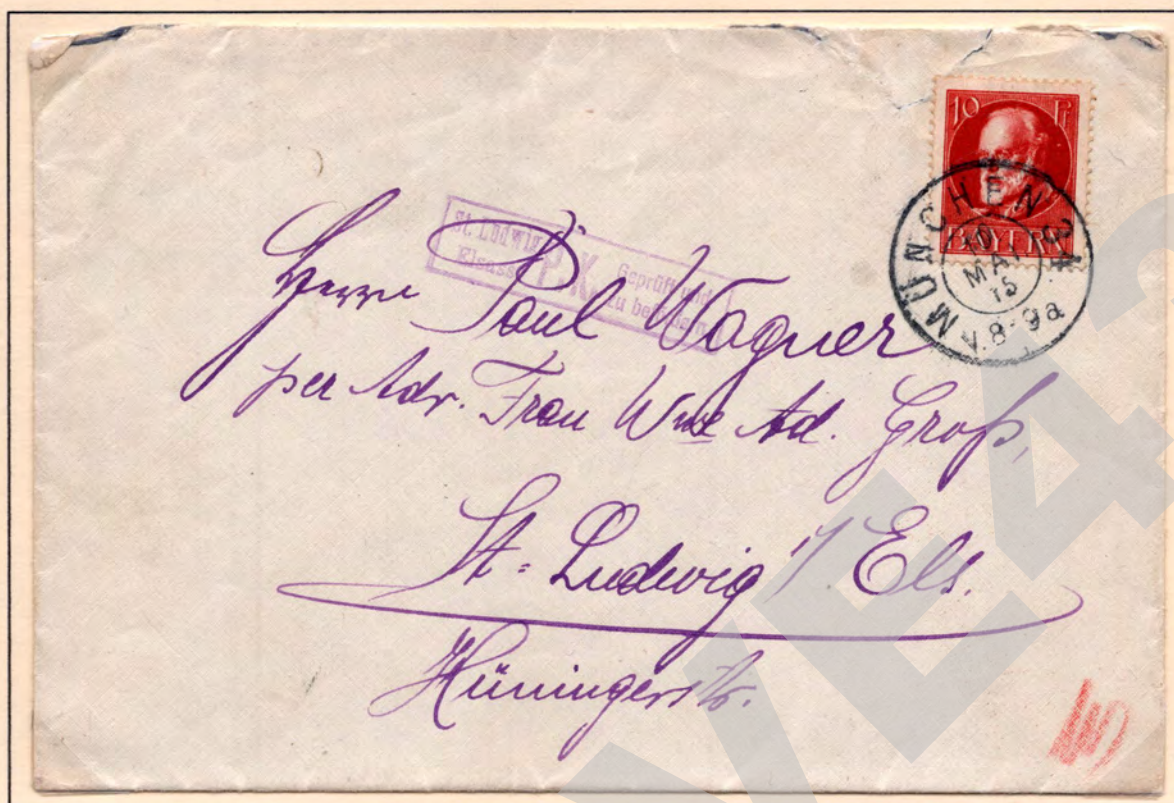 10 Pf
BAYERN
MÜNCHEN
10
MAI
15
V.8-9a
St. Ludwig
Elsass
P.K.
Geprüft und
zu befördern
Herrn Paul Wagner
per Adr. Frau Wwe Ad. Groß,
St. Ludwig i/ Els.
Hüningerstr.